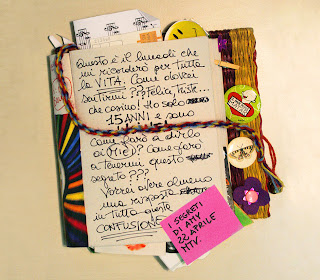 Questo è il lunedì che
mi ricorderò per tutta
la VITA. Come dovrei
sentirmi??? Felice, triste...
che casino! Ho solo
15 ANNI e sono
Come farò a dirlo
ai MIEI? Come farò
a tenermi questo
segreto???
Vorrei avere almeno
una risposta
in tutta questa
CONFUSIONE
I SEGRETI
DI AMY
22 APRILE
MTV.